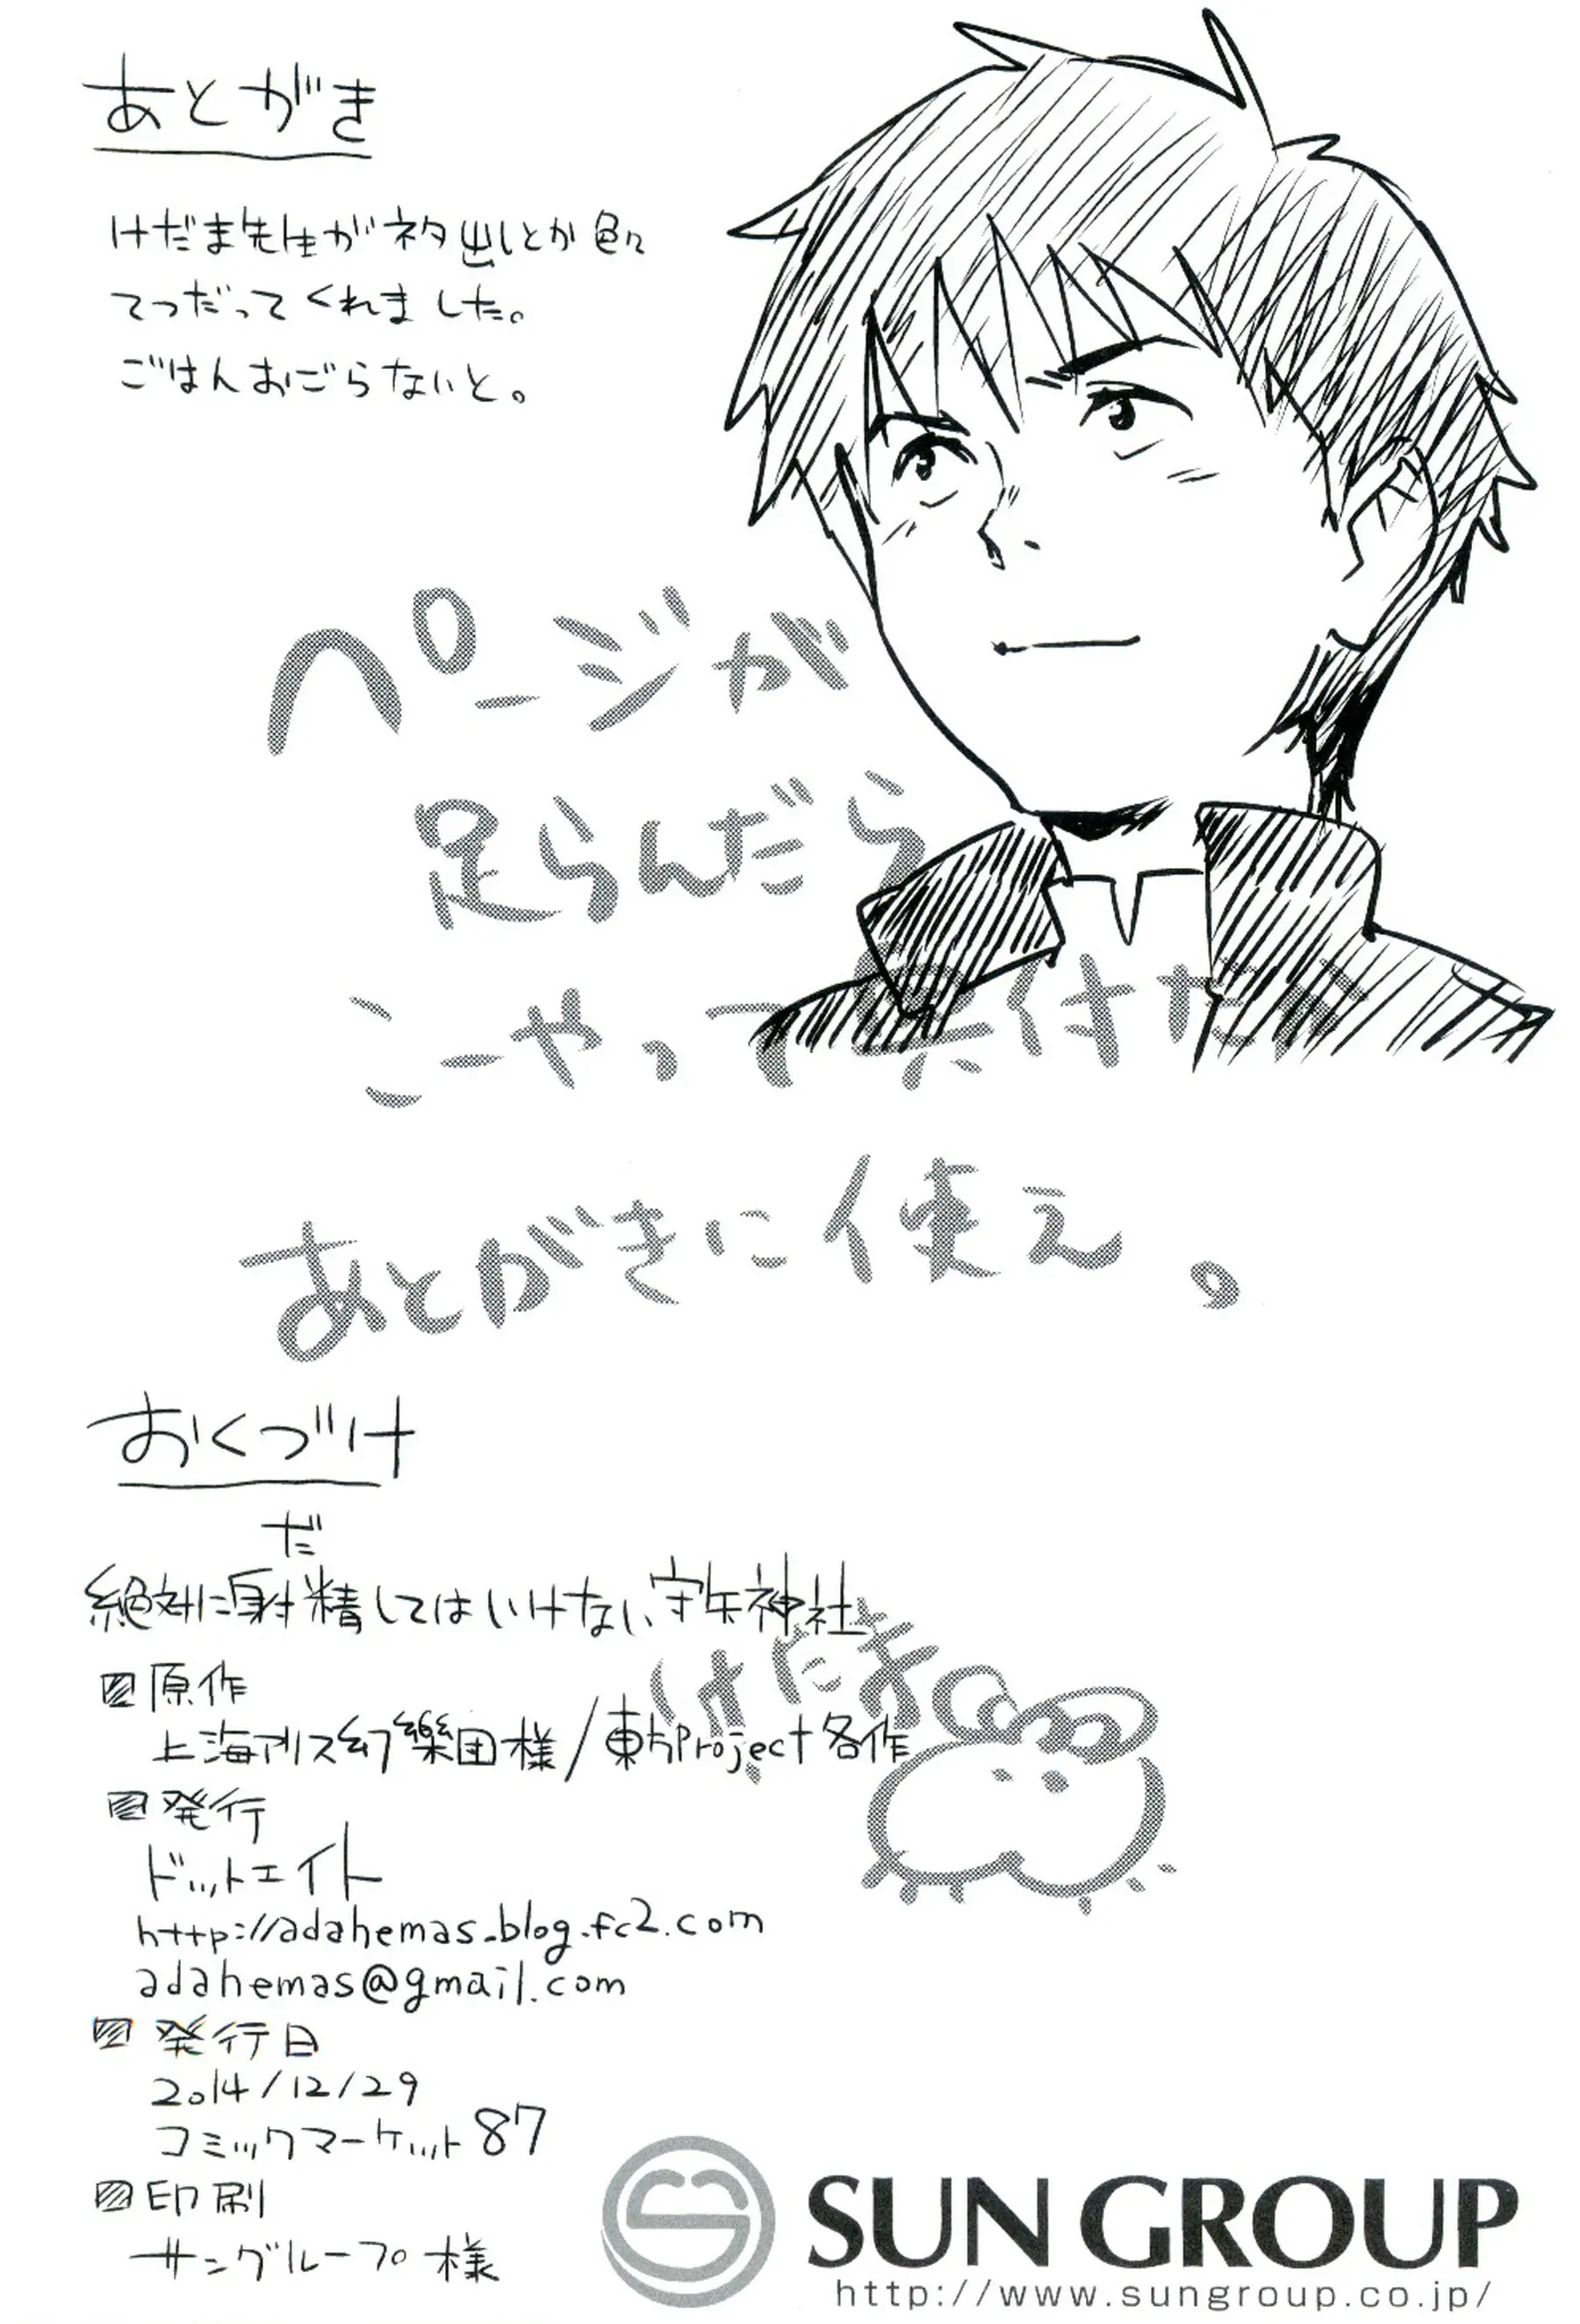 あとがき
けだま先生がネタ出しとか色々
てつだってくれました。
ごはんおごらないと。
ページが
足らんだら
こーやって
あとがきに使え。
おくづけ
だ
絶対に射精してはいけない守矢神社
けだま
原作
上海アリス幻樂団様/東方Project各作
発行
ドットエイト
http://adahemas.blog.fc2.com
adahemas@gmail.com
発行日
2014/12/29
コミックマーケット87
印刷
サングループ様
SUN GROUP
http://www.sungroup.co.jp/